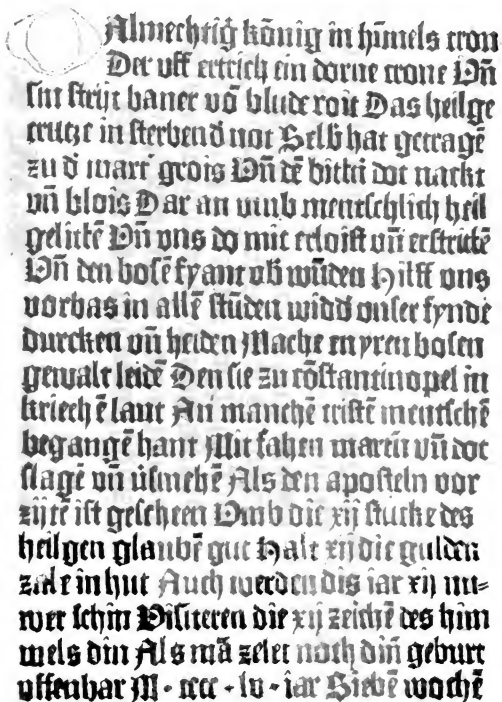 Almechtig̃ kõnig in hm̃els cron
Der uff ertrich ein dorne crone Uñ
sin strijt baner võ blude roit Das heilge
crutze in sterbend̃ not Selb̃ hat getragẽ
zu d̃ mart̾ grois Uñ dẽ bittñ dot nackt
uñ blois Dar an umb mentschlich heil
gelittẽ Uñ uns do mit erloist uñ erstrictẽ
Uñ den bosẽ fyant ub̃ wũdẽ Hilff uns
vorbas in allẽ stũdẽ widd̃ unser fynde
durcken uñ heiden Mache en yren bosen
gewalt leidẽ Den sie zu cõstantinopel in
kriechẽ lant An manchẽ cristẽ mentschẽ
begangẽ hant Mit fahen martñ uñ dot
slagẽ uñ v̾smehẽ Als den aposteln vor
zijtẽ ist gescheen Umb die xij stucke des
heilgen glaubẽ gut Halt xij die gulden
zale in hut Auch werden dis iar xij nu⸗
wer schin Visiteren die xij zeichẽ des him
mels din Als mã zelet noch din̄ geburt
uffenbar M · cccc · lv · iar Siebẽ wochẽ